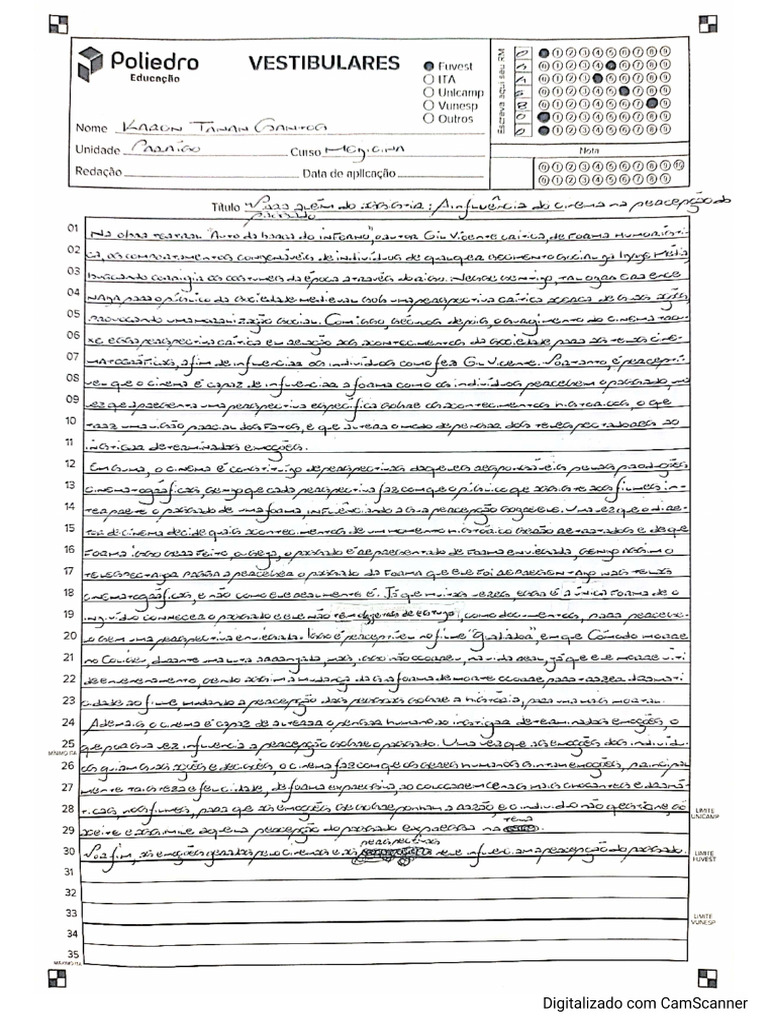 Poliedro
Educação
VESTIBULARES
Fuvest
ITA
Unicamp
Vunesp
Outros
Escreva aqui seu RM
Nome
Unidade Paraíso Curso Medicina
Redação Data de aplicação
Nota
Título Para além do : A influência do cinema na percepção do
passado
01 Na obra teatral "Auto da barca do inferno", o autor Gil Vicente critica, de forma humorísti-
02 ca, os comportamentos de indivíduos de qualquer segmento social na Idade Média
03 buscando corrigir os costumes da época através do riso. Nesse sentido, tal
04 para o público da sociedade medieval sob uma perspectiva crítica acerca de suas ações
05 provocando uma social. Com isso, séculos depois, o surgimento do cinema trou-
06 xe essa perspectiva crítica em relação aos acontecimentos da sociedade para as telas cine-
07 matográficas, a fim de influenciar os indivíduos como fez Gil Vicente. Portanto, é perceptí-
08 vel que o cinema é capaz de influenciar a forma como os indivíduos percebem o passado, uma
09 vez que apresenta uma perspectiva específica sobre os acontecimentos históricos, o que
10 traz uma visão parcial dos fatos, e que altera o modo de pensar dos telespectadores ao
11 instigar determinadas emoções.
12 Em suma, o cinema é constituído de perspectivas daqueles responsáveis pelas produções
13 cinematográficas, sendo que cada perspectiva faz com que o público que assiste aos filmes in-
14 terprete o passado de uma forma, influenciando a sua percepção sobre ele. Uma vez que o dire-
15 tor de cinema decide quais acontecimentos de um momento histórico serão retratados e de que
16 forma isso será feito, ou seja, o passado é representado de forma enviesada, sendo assim o
17 telespectador passa a perceber o passado da forma que ele foi representado nas telas
18 cinematográficas, e não como ele realmente é. Já que muitas vezes, essa é a única forma de o
19 indivíduo conhecer o passado e ele não tem objetos de estudo, como documentos, para percebe-
20 lo sem uma perspectiva enviesada. Isso é perceptível no filme "Gladiador", em que Cômodo morre
21 no Coliseu, durante uma luta arranjada, mas, isso não ocorreu na vida real, já que ele morre víti-
22 de envenenamento, sendo assim a mudança da sua forma de morte ocorre para trazer dramati-
23 cidade ao filme, mudando a percepção das pessoas sobre a história, para uma mais mortal.
24 Ademais, o cinema é capaz de alterar o pensar humano ao instigar determinadas emoções, o
25 que por sua vez influencia a percepção sobre o passado. Uma vez que as emoções dos indivídu-
26 os guiam suas ações e decisões, o cinema faz com que os seres humanos sintam emoções, principal-
27 mente tristeza e felicidade, de forma expressiva, ao colocarem cenas mais chocantes e dramá-
28 ticas nos filmes, para que as emoções se sobreponham a razão e o indivíduo não questione, só
29 aceite e assimile aquela percepção do passado expressa na tela.
30 Por fim, as emoções geradas pelo cinema e as perspectivas nele influenciam a percepção do passado.
31
32
33
34
35
MÍNIMO ITA
LIMITE UNICAMP
LIMITE FUVEST
LIMITE VUNESP
MÁXIMO ITA
Digitalizado com CamScanner